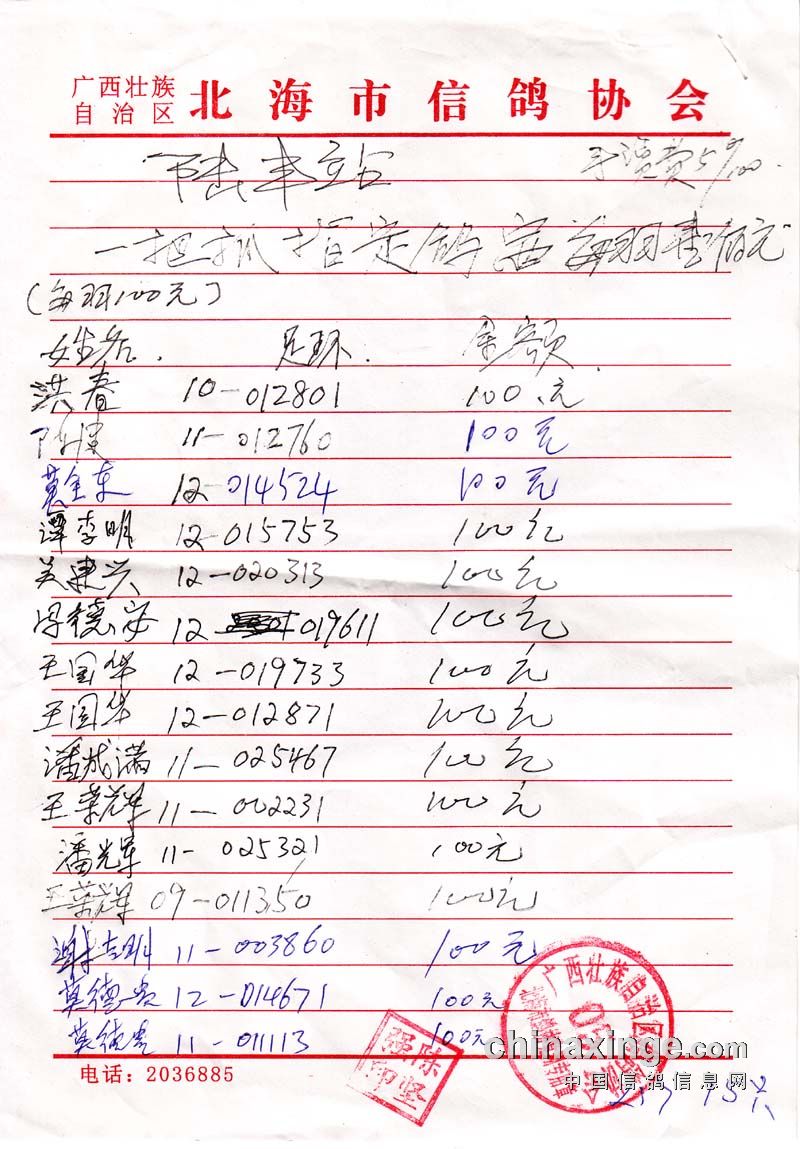 广西壮族
自治区 北海市信鸽协会
下陆丰站 手续费5%
一把抓指定鸽 每羽壹佰元
(每羽100元)
姓名. 足环. 金额.
洪春 10-012801 100.元
11-012760 100元
莫全东 12-014524 100元
谭李明 12-015753 100元
吴建兴 12-020313 100元
德安 12 019611 100元
王国华 12-019733 100元
王国华 12-012871 100元
潘成满 11-025467 100元
王荣辉 11-002231 100元
潘光军 11-025321 100元
王荣辉 09-011350 100元
谢志明 11-003860 100元
莫德贵 12-014671 100元
莫德贵 11-011113 100元
电话:2036885
强陈
印坚
广西壮族自治区
chinaxinge.com
中国信鸽信息网
15只